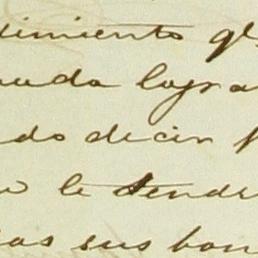 dimiento q
uda logra
do decir
le tendr
ias sus bon